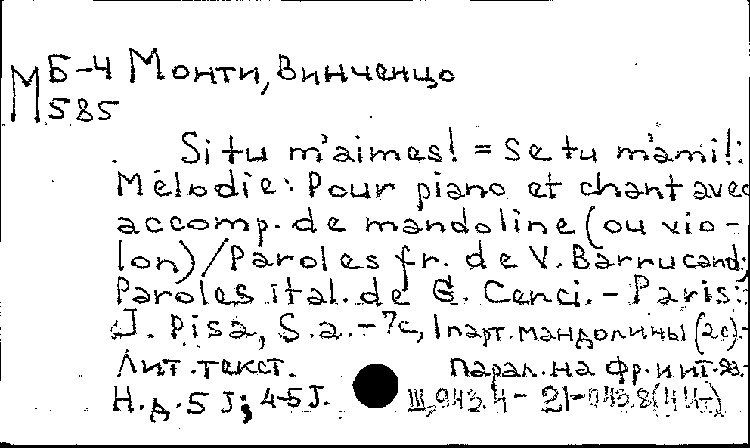 М Б-4 Монти, Винченцо
585
Si tu m'aimes! = Se tu m'ami!:
Mélodie: Pour piano et chant avec
accomp. de mandoline (ou vio-
lon) / Paroles fr. de V. Barrucand;
Paroles ital. de G. Cenci. - Paris:
J. Pisa, S.a. - 7с, 1 парт. мандолины (2с). -
Лит. текст. парал. на фр. и ит. яз. -
Н.д. 5 J; 45 J. Ш,943.4 - 21-043.8(4Ит)